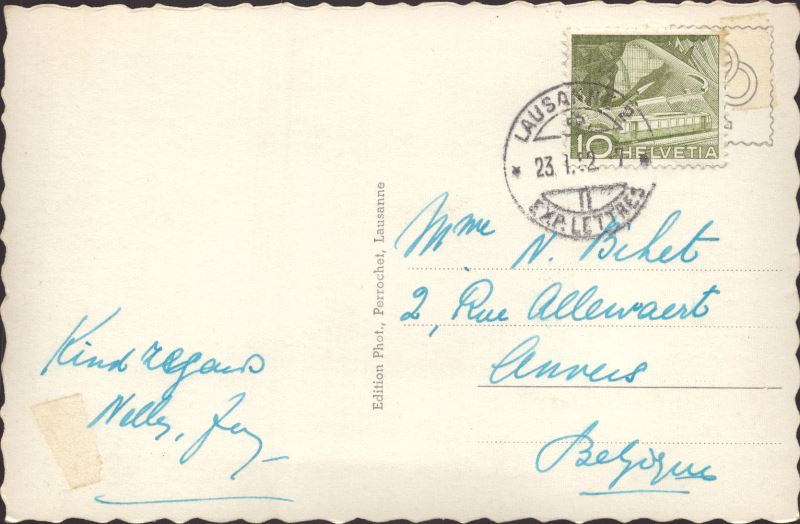 Kind regards
Nelly,
Edition Phot., Perrochet, Lausanne
LAUSANNE
23. I.
EXP. LETTRES
10 HELVETIA
Mme N. Bihet
2, Rue Allewaert
Anvers
Belgique